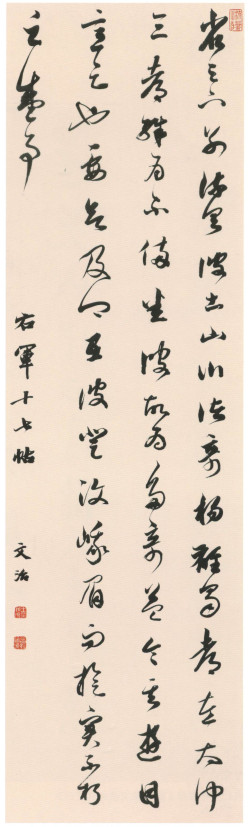 省足下別疏具彼土山川諸奇楊雄蜀都左太沖
三都殊為不備悉彼故為多奇益令其遊目
意足也要欲及卿在彼登汶峨眉而旋實不朽
之盛事
右軍十七帖 文治